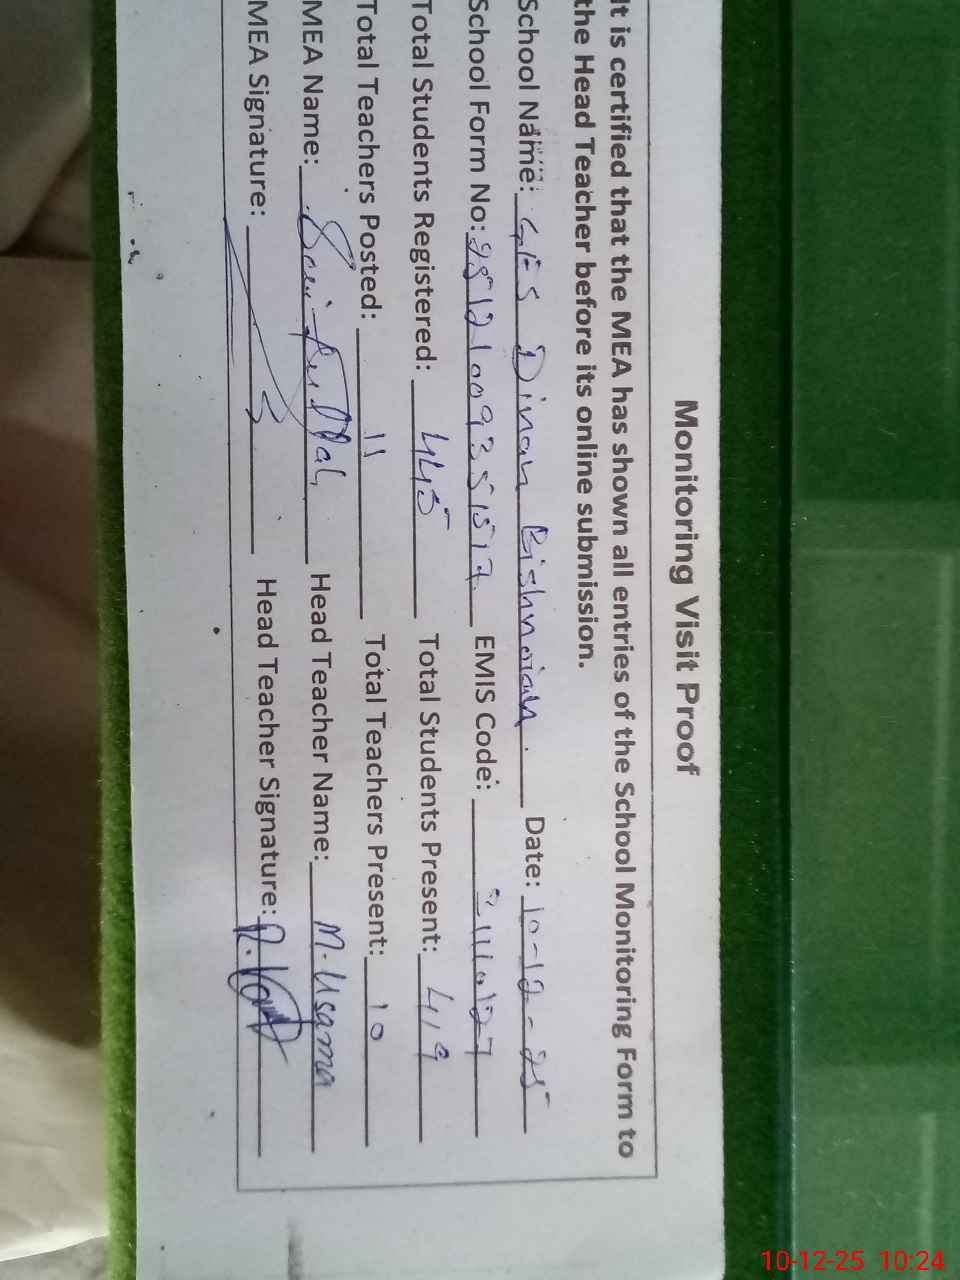 Monitoring Visit Proof
It is certified that the MEA has shown all entries of the School Monitoring Form to
the Head Teacher before its online submission.
School Name: GES Dinan Bishnoian. Date: 10-12-25
School Form No: EMIS Code:
Total Students Registered: 445 Total Students Present: 419
Total Teachers Posted: 11 Total Teachers Present: 10
MEA Name: Head Teacher Name: M. Usama
MEA Signature: Head Teacher Signature:
10-12-25 10:24